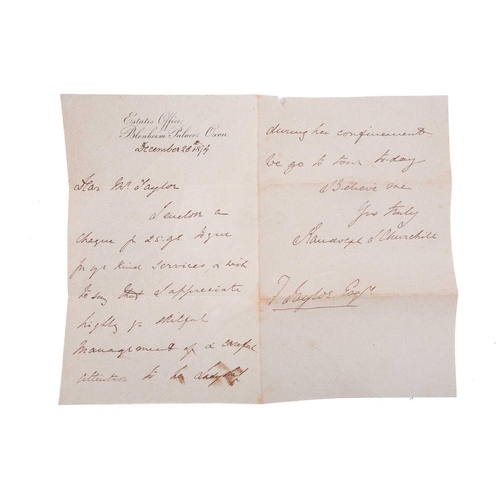 Estates Office,
Blenheim Palace, Oxon.
December 28th 1874
Dear Mr. Taylor
I enclose a
cheque for 25.gs
for yr kind services, & wish
to say that I appreciate
highly yr skilful
management of & careful
attention to her Ladyship
during her confinement
We go to town today
Believe me
Yrs truly
Randolph S Churchill
T Taylor Esqr